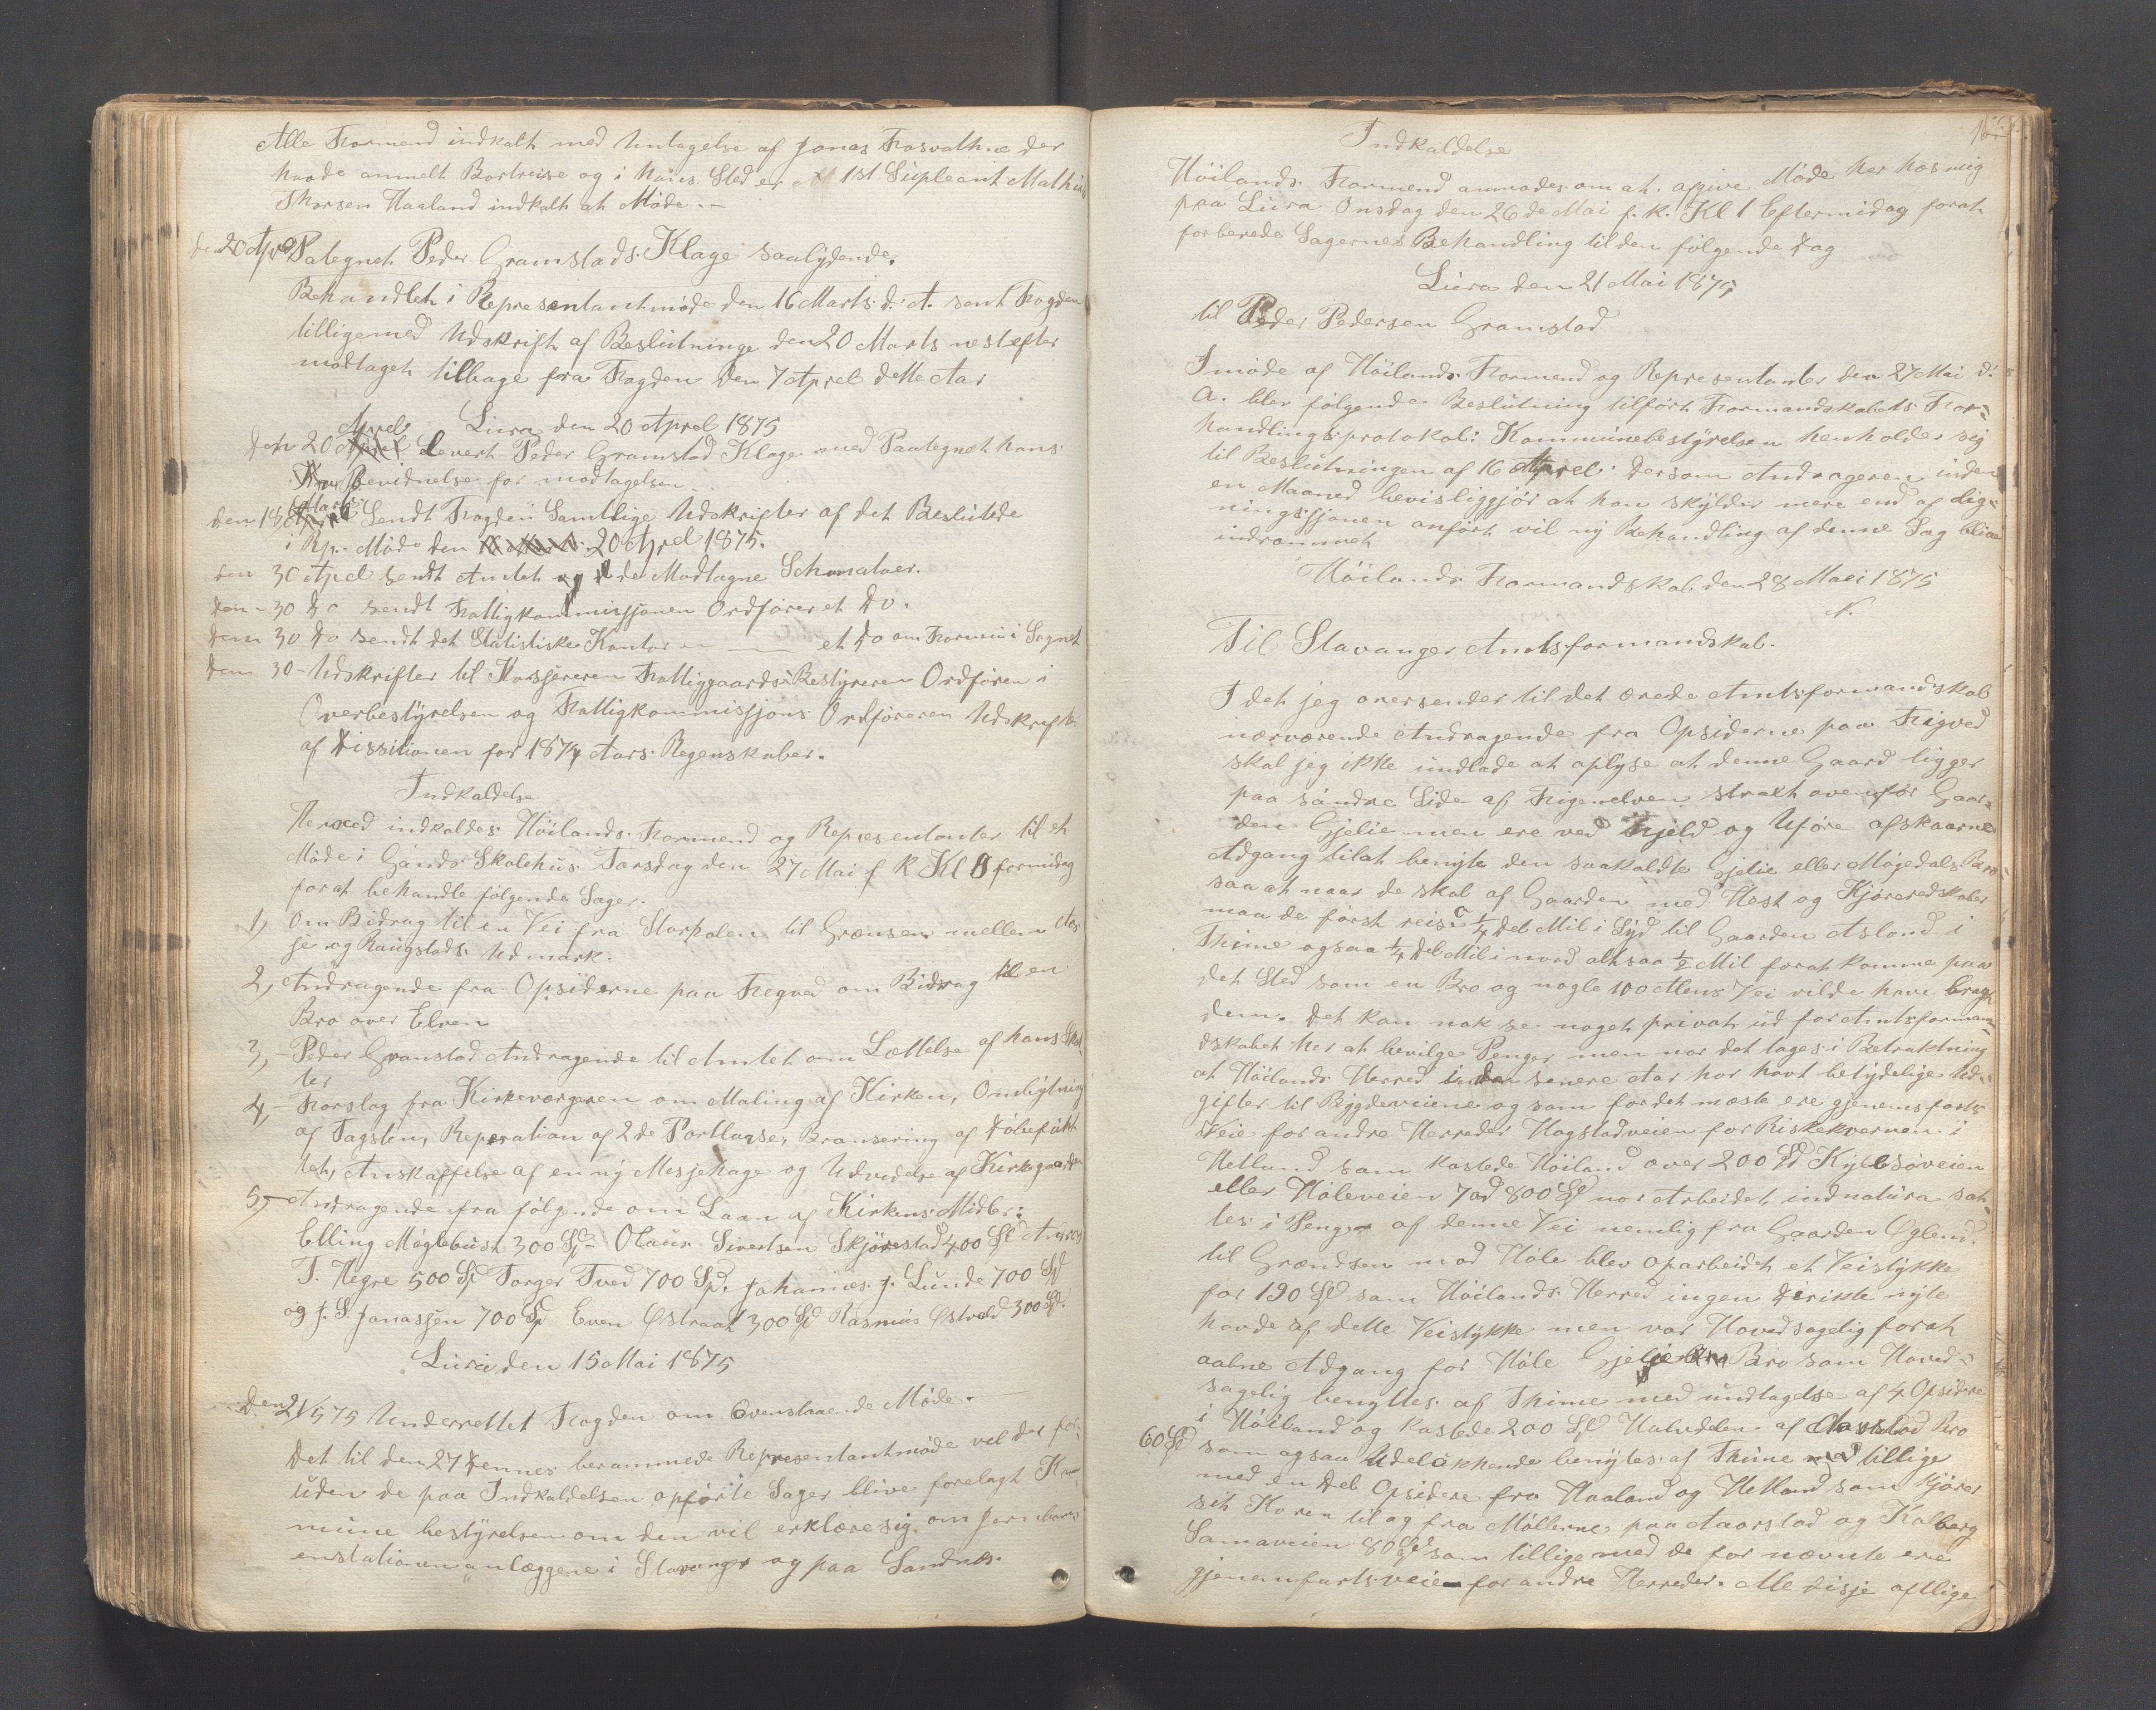 Alle Formend indkalt med Untagelse af Jonas Fosvatne der
havde anmelt Bortreise og i hans Sted er 1st Supleant Mathias
Thorsen Haaland indkalt at Møde. —
den 20 April Pategnet Peder Gramstads Klage saalydende.
Behandlet i Representantmøde den 16 Marts d. A. sent Fogden
tilligemed Udskrift af Beslutninge den 20 Marts nestefter
modtaget tilbage fra Fogden den 7 April dette Aar
Lura den 20 April 1875
den 20 April Levert Peder Gramstad Klage med Paategnet hans
Bevidnelse for modtagelsen.
den 18 Marts Sendt Fogden Samtlige Udskrifter af det Beslutede
i Rp. Møde den 20 April 1875.
den 30 April sendt Amtet de Modtagne Schmataer.
den - 30 Do sendt Fattigkommissjonen Ordfører et Do.
den 30 Do sendt det Statistiske Kontor — et Do om Formein i Sognet
den 30 - Udskrifter til Kassjereren Fattiggaards Bestyreren Ordføren i
Overbestyrelsen og Fattigkommissjons Ordføreren Udskrift
af Dissitionen for 1874 Aars Regenskaber.
Indkaldelse
Herved indkaldes Höilands Formend og Representanter til et
Møde i Gands Skolehus Torsdag den 27 Mai f. K. Kl 8 formidag
forat behandle følgende Sager.
1, Om Bidrag til en Vei fra Storholen til Grænsen mellem As-
je og Raugstads Udmark.
2, Andragende fra Opsiderne paa Fegved om Bidrag til en
Bro over Elven
3, - Peder Gramstad Andragende til Amtet om Lættelse af hans Skat-
ter
4, - Forslag fra Kirkeværgeren om Maling af Kirken, Ombytning
af Tagsten, Reperation af 2de Portlaase, Bransering af Döbefatt
tet, Anskaffelse af en ny Messehage og Udvidelse af Kirkegaarden
5, - Andragende fra følgende om Laan af Kirkens Midler:
Elling Møglebust 300 Spd - Olaus Sivertsen Skjørestad 400 Spd Andreas
T. Hegre 500 Spd Torger Tved 700 Spd. Johannes J. Lunde 700 Spd
og J. S. Jonassen 700 Spd Even Østraat 300 Spd Rasmus Østvold 300 Spd.
Lura den 15 Mai 1875
Den 21/5 75 Underrettet Fogden om Ovenstaaende Møde. —
Det til den 27 Dennes berammede Representantmøde vil der for-
uden de paa Indkaldelsen opførte Sager blive forelagt Kom-
mune bestyrelsen om den vil erklære sig om Jernbane-
enstationen anlæggene i Stavanger og paa Sandnes.
Indkaldelse
Höilands Formend anmodes om at afgive Møde her hos mig
paa Lura Onsdag den 26de Mai f. k. Kl 1 Eftermidag forat
forberede Sagernes Behandling til den følgende Dag
Lura den 21 Mai 1875
til Peder Pedersen Gramstad
I møde af Höilands Formend og Representanter den 27 Mai d.
A. blev følgende Beslutning tilført Formandskabets For-
handlingsprotokol: Kommunebestyrelsen henholder sig
til Beslutningen af 16 April. Dersom Andrageren inden
en Maaned bevisliggjør at han skylder mere end af lig-
ningssjonen anført vil ny Behandling af denne Sag blive
indrømmet
Höilands Formandskab den 28 Mai 1875
N.
Til Stavanger Amtsformandskab.
I det jeg oversender til det ærede Amtsformandskab
nærværende Andragende fra Opsiderne paa Figved
skal jeg ikke undlade at oplyse at denne Gaard ligger
paa søndre Side af Figenelven stralt ovenfor Gaar-
den Gjelie men ere ved Fjeld og Uføre afskaarne
Adgang til at benyte den saakaldte Gjelie eller Møgedals Bro
saa at naar de skal af Gaarden med Hest og Kjøreredskaber
maa de først reise 1/4 Del Mil i Syd til Gaarden Asland i
Thime ogsaa 1/4 Del Mil i nord altsaa 1/2 Mil forat komme paa
det Sted som en Bro og nogle 100 Alens Vei vilde have bragt
dem. Det kan nok se noget privat ud for Amtsforman-
dskabet her at bevilge Penger men nor det tages i Betraktning
at Höilands Herred i den senere Aar har havt betydelige Ud-
gifter til Bygdeveiene og som fordet meste ere gjenemfarts
Veie for andre Herreder Hogstadveien for Riskekvernen i
Hetland som kostede Höiland over 200 Spd Kyllesøveien
eller Höleveien 7 ad 800 Spd nor Arbeidet indnatura sat-
tes i Penger af denne Vei nemlig fra Gaarden Øglend.
til Grændsen mod Höle blev oparbeidet et Veistykke
for 190 Spd som Höilands Herred ingen Direkte nyte
havde af dette Veistykke men var Hovedsagelig forat
aabne Adgang for Höle Gjelie Bro som Hoved-
sagelig benyttes af Thime med undtagelse af 4 Opsidere
i Höiland og kostede 200 Spd Halvdelen af Aarstad Bro
60 Spd som ogsaa Udelükkende benytes af Thime med tillige
med en Del Opsidere fra Haaland og Hetland som Kjører
sit Koren til og fra Möllerne paa Aarstad og Kalberg
Samaveien 80 Spd som tilligemed de for nævnte ere
gjenemfartsveie for andre Herreder. Alle Disse aftlige